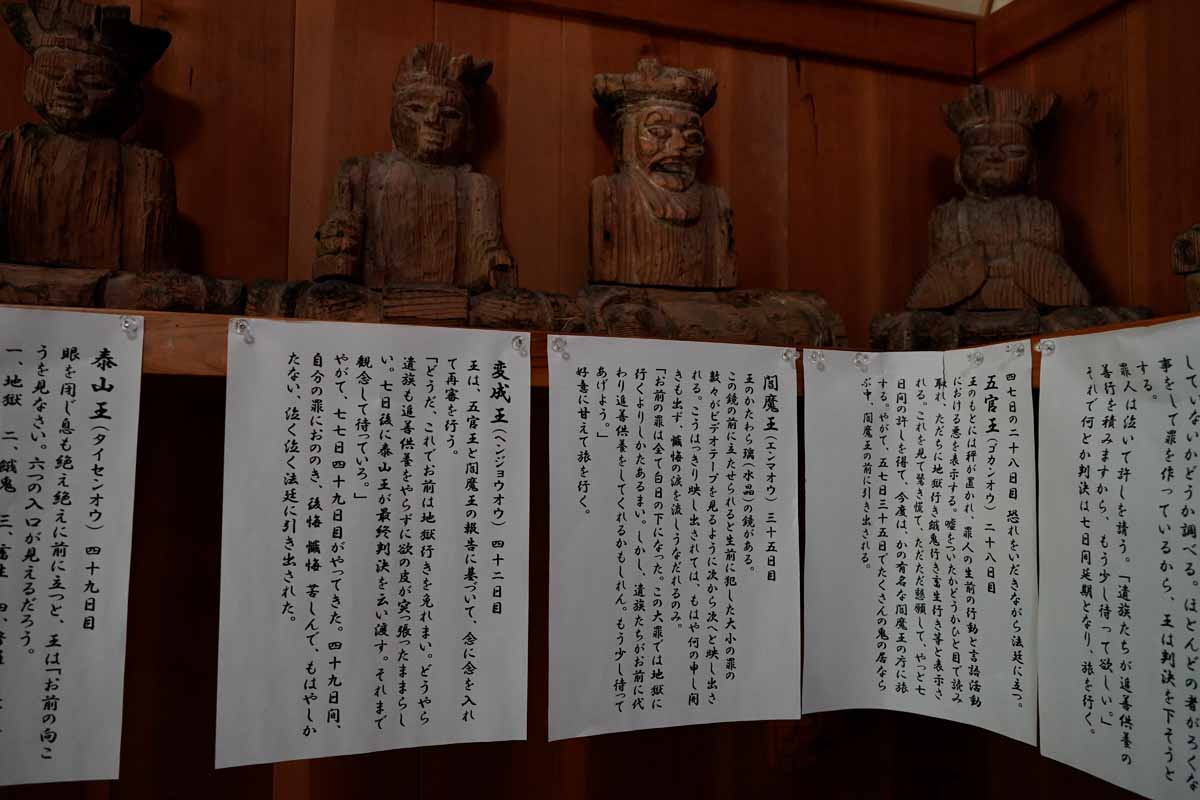 していないかどうか調べる。ほとんどの者がろくな
事をして罪を作っているから、王は判決を下そうと
する。
罪人は泣いて許しを請う。「遺族たちが追善供養の
善行を積みますから、もう少し待って欲しい。」
それで何とか判決は七日間延期となり、旅を行く。
四七日の二十八日目 恐れをいだきながら法廷に立つ。
五官王(ゴカンオウ) 二十八日目
王のもとには秤が置かれ、罪人の生前の行動と言語活動
における悪を表示する。嘘をついたかどうかひと目で読み
取れ、ただちに地獄行き餓鬼行き畜生行き等と表示さ
れる。これを見て驚き慌て、ただただ懇願して、やっと七
日間の許しを得て、今度は、かの有名な閻魔王の庁に旅
する。やがて、五七日三十五日でたくさんの鬼の居なら
ぶ中、閻魔王の前に引き出される。
閻魔王(エンマオウ) 三十五日目
王のかたわら璃(水晶)の鏡がある。
この鏡の前に立たせられると生前に犯した大小の罪の
数々がビデオテープを見るように次から次へと映し出さ
れる。こうはっきり映し出されては、もはや何の申し開
きも出ず、懺悔の涙を流しうなだれるのみ。
「お前の罪は全て白日の下になった。この大罪では地獄に
行くよりしかたあるまい。しかし、遺族たちがお前に代
わり追善供養をしてくれるかもしれん。もう少し待って
あげよう。」
好意に甘えて旅を行く。
変成王(ヘンジョウオウ) 四十二日目
王は、五官王と閻魔王の報告に基づいて、念に念を入れ
て再審を行う。
「どうだ、これでお前は地獄行きを免れまい。どうやら
遺族も追善供養をやらずに欲の皮が突っ張ったままらし
い。七日後に泰山王が最終判決を云い渡す。それまで
観念して待っていろ。」
やがて、七七日四十九日目がやってきた。四十九日間、
自分の罪におののき、後悔 懺悔 苦しんで、もはやしか
たない、泣く泣く法廷に引き出された。
泰山王(タイセンオウ) 四十九日目
眼を閉じ息も絶え絶えに前に立つと、王は「お前の向こ
うを見なさい。六つの入口が見えるだろう。
一、地獄 二、餓鬼 三、畜生 四、